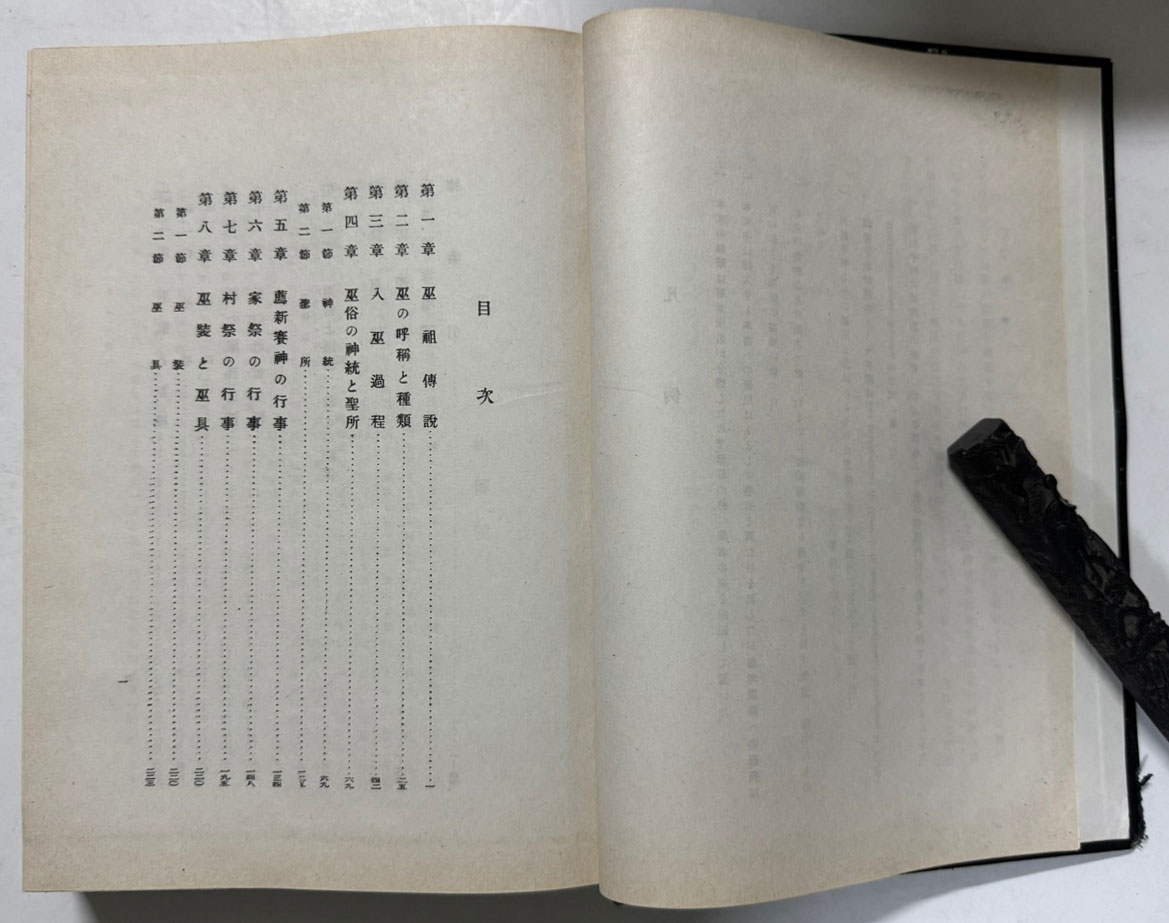 目次
第一章 巫祖傳說……一
第二章 巫の呼稱と種類……二五
第三章 入巫過程……四二
第四章 巫俗の神統と聖所……六九
第一節 神統……六九
第二節 聖所……
第五章 薦新賽神の行事……一三四
第六章 家祭の行事……一四八
第七章 村祭の行事……一九五
第八章 巫裝と巫具……
第一節 巫裝……
第二節 巫具……
一